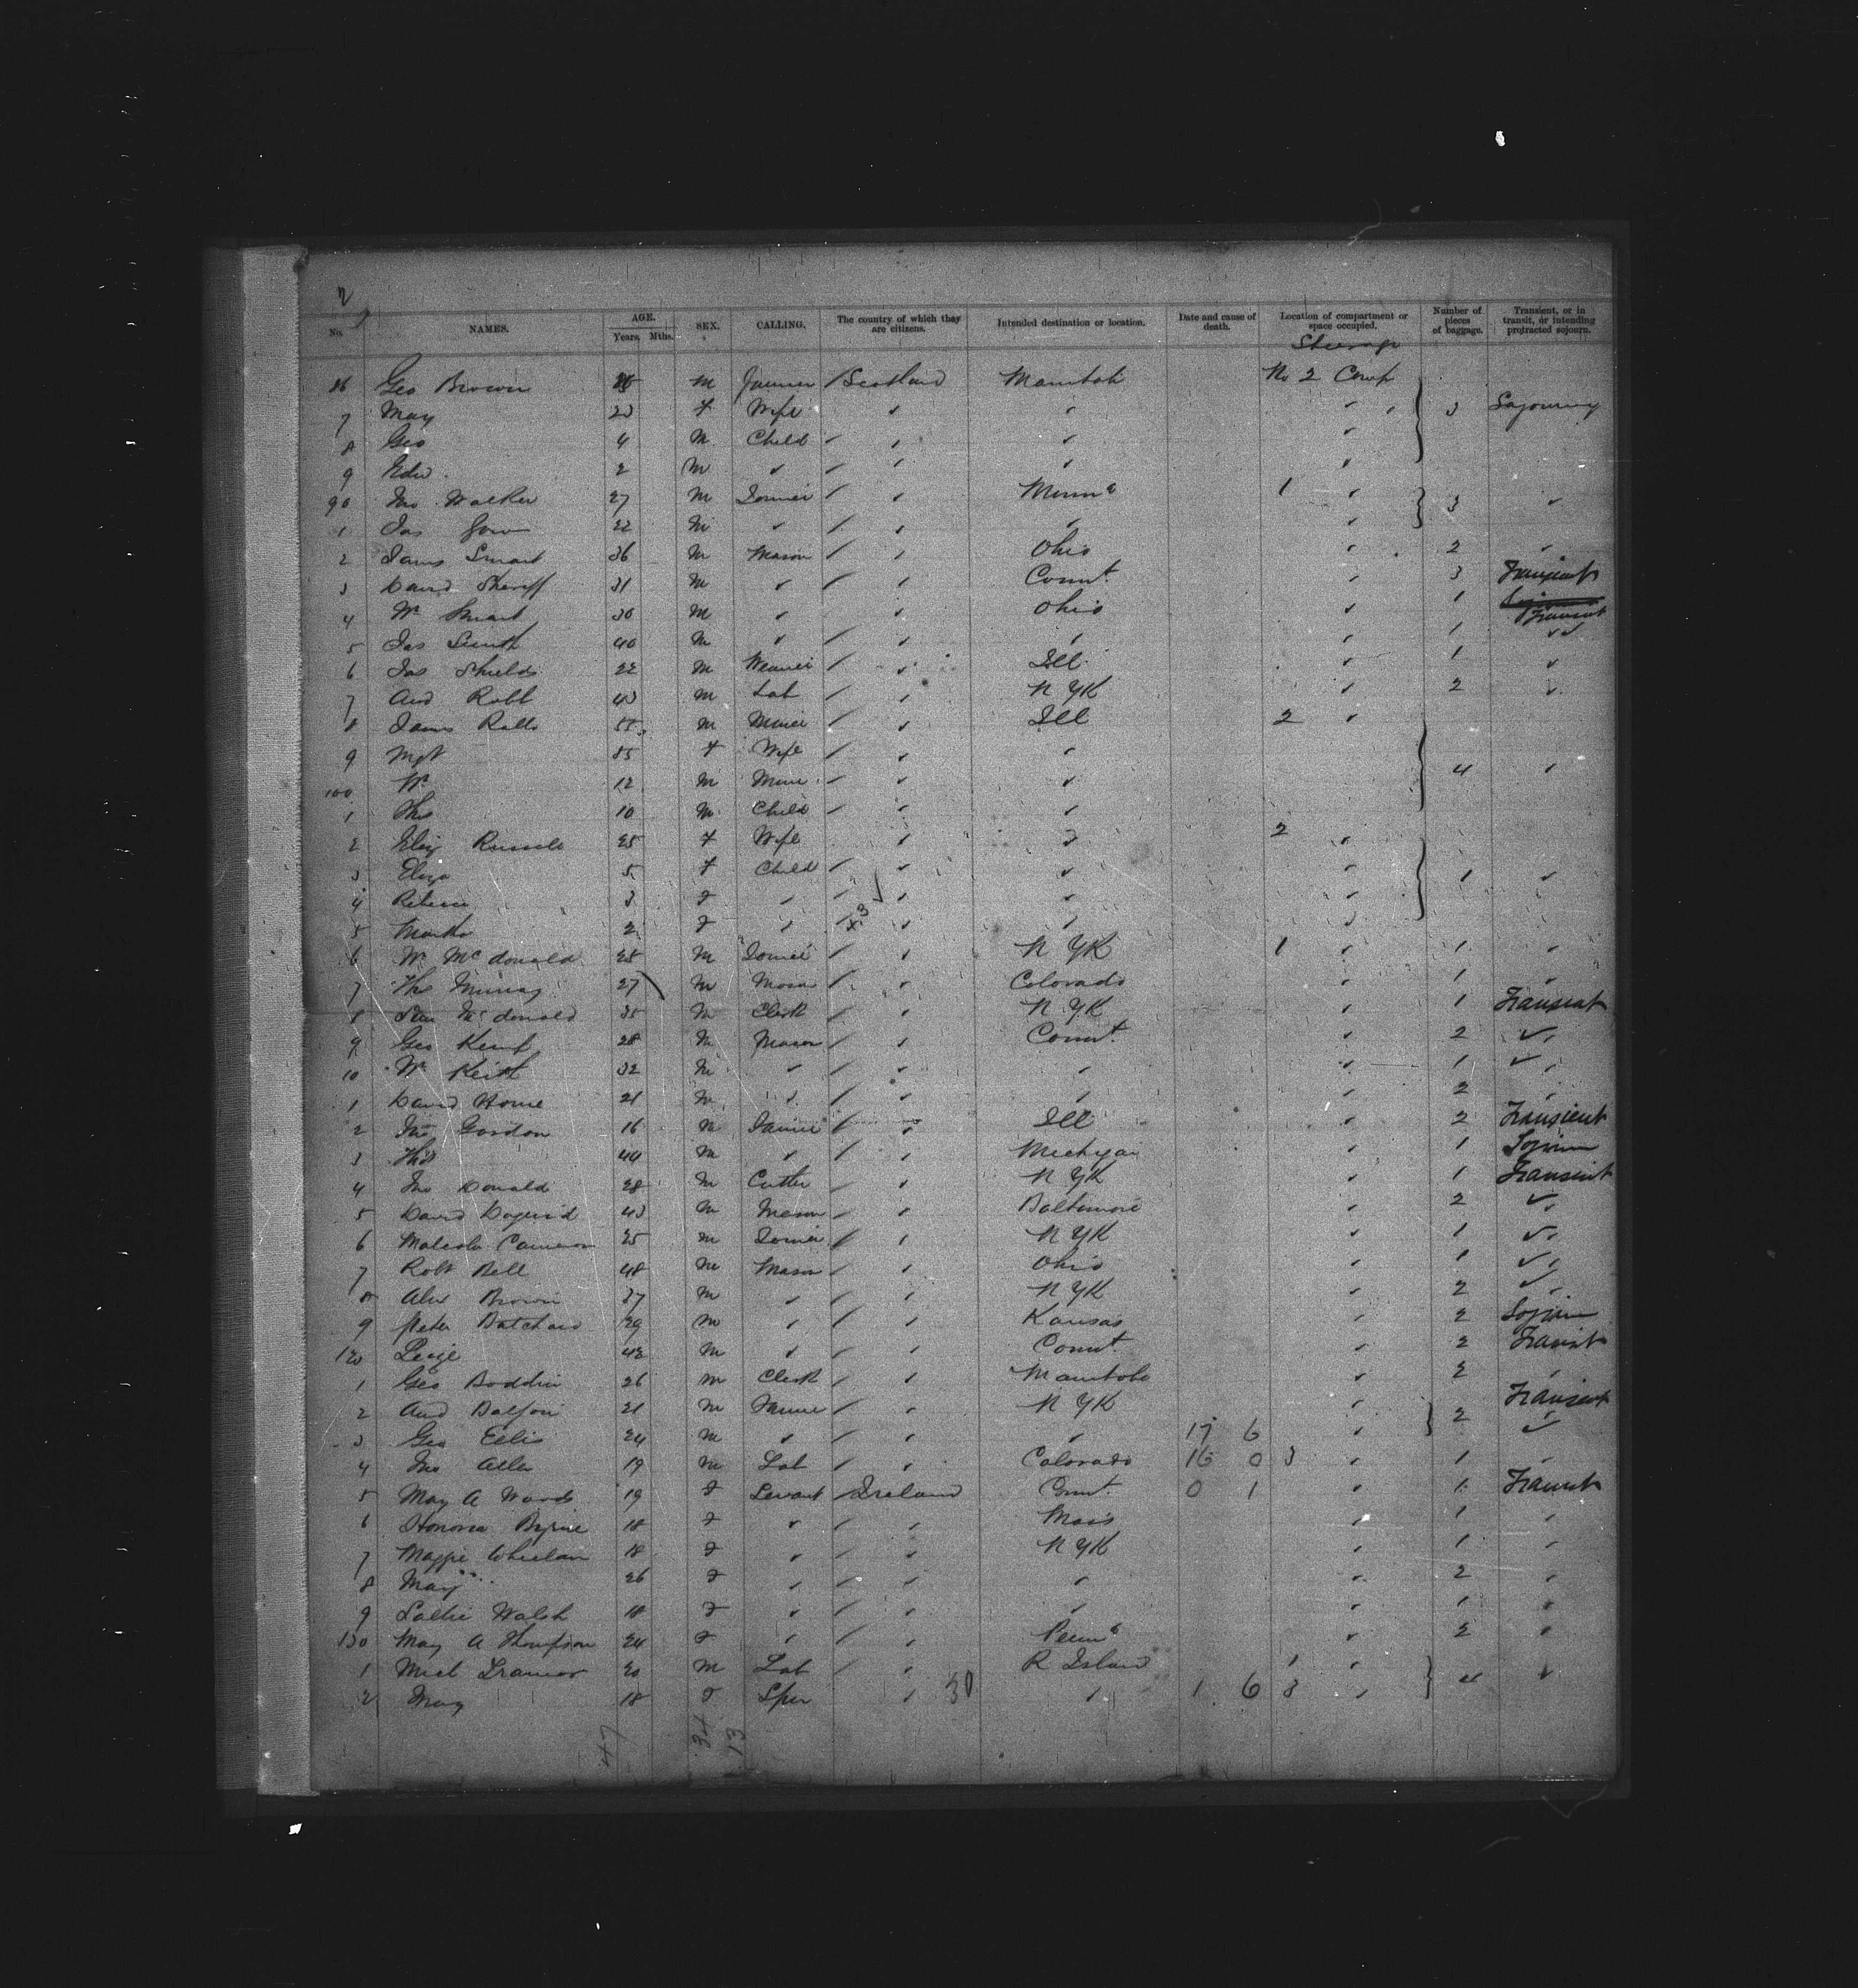 2
No. NAMES. AGE. Years. Mths. SEX. CALLING. The country of which they are citizens. Intended destination or location. Date and cause of death. Location of compartment or space occupied. Number of pieces of baggage. Transient, or in transit, or intending protracted sojourn.
Steerage
86 Geo Brown M Farmer Scotland Manitob No 2 Comp
7 May 23 f Wife ✓ ✓ ✓ 3
8 Geo 4 M Child ✓ ✓ ✓
9 Edw. 2 M ✓ ✓ ✓ ✓
90 Jno Walker 27 M ✓ Minna 1 ✓ 3 ✓
1 Jas Gow 22 M ✓ ✓ ✓ ✓
2 James Smart 36 M Mason ✓ Ohio ✓ 2 ✓
3 David Sheriff 31 M ✓ ✓ Connt. ✓ 3 Transient
4 Wm Smart 30 M ✓ ✓ Ohio ✓ 1 Transient
5 Jas Smith 40 M ✓ ✓ ✓ ✓ 1 ✓
6 Jas Shields 22 M Weaver ✓ Ill. ✓ 1 ✓
7 And Robb 43 M Lab ✓ N YK ✓ 2 ✓
8 James Rallo 55 M Miner ✓ Ill 2 ✓
9 Mgt 35 f Wife ✓ ✓
100 Wm 12 M Mine ✓ ✓ 4 ✓
1 Thos 10 M Child ✓ ✓
2 Eliz Russell 25 f Wife ✓ ✓ 2 ✓
3 Eliza 5 f Child ✓ ✓ ✓ 1 ✓
4 Rebecca 3 f ✓ ✓ ✓ ✓
5 Martha 2 f ✓ ✓ ✓ ✓
6 Wm McDonald 28 M ✓ N YK 1 ✓ 1 ✓
7 Thos Murray 27 M Mason ✓ Colorado ✓ 1 ✓
8 McDonald M Clerk ✓ N YK ✓ 1 Transient
9 Geo Kemp 28 M Mason ✓ Connt. ✓ 2 ✓
10 Wm Keith 32 M ✓ ✓ ✓ ✓ 1 ✓
1 David Horne 21 M ✓ ✓ ✓ ✓ 2 ✓
2 Jno Gordon 16 M Farmer ✓ Ill ✓ 2 Transient
3 Thos 44 M ✓ ✓ Michigan ✓ 1 Sojourn
4 Jno Donald 28 M Cutter ✓ N YK ✓ 1 Transient
5 David 43 M Mason ✓ Baltimore ✓ 2 ✓
6 Malcolm Cameron 25 M ✓ N YK ✓ 1 ✓
7 Robt Bell 48 M Mason ✓ Ohio ✓ 1 ✓
8 Alex Brown 37 M ✓ ✓ N YK ✓ 2 ✓
9 Peter 29 M ✓ ✓ Kansas ✓ 2 Sojourn
120 42 M ✓ ✓ Connt ✓ 2 Transit
1 Geo Boddin 26 M Clerk ✓ Manitoba ✓ 2 ✓
2 And Balfour 21 M Farmer ✓ N YK ✓ 2 Transient
3 Geo Ellis 24 M ✓ ✓ ✓ 17 6 ✓ ✓
4 Jno Allen 19 M Lab ✓ Colorado 16 0 3 ✓ 1 ✓
5 May A Woods 19 f Servant Ireland Connt. 0 1 ✓ 1 Transit
6 Honora Byrne 18 f ✓ ✓ Mass ✓ 1 ✓
7 Maggie Whelan 18 f ✓ ✓ N YK ✓ 1 ✓
8 May " 26 f ✓ ✓ ✓ ✓ 2 ✓
9 Lallie Walsh 18 f ✓ ✓ ✓ ✓ 1 ✓
130 May A Thompson 24 f ✓ ✓ Penna ✓ 2 ✓
1 Mich 20 M Lab ✓ R Island ✓ ✓
2 May 18 f Spin ✓ 30 ✓ 1 6 3 ✓
47 34 13